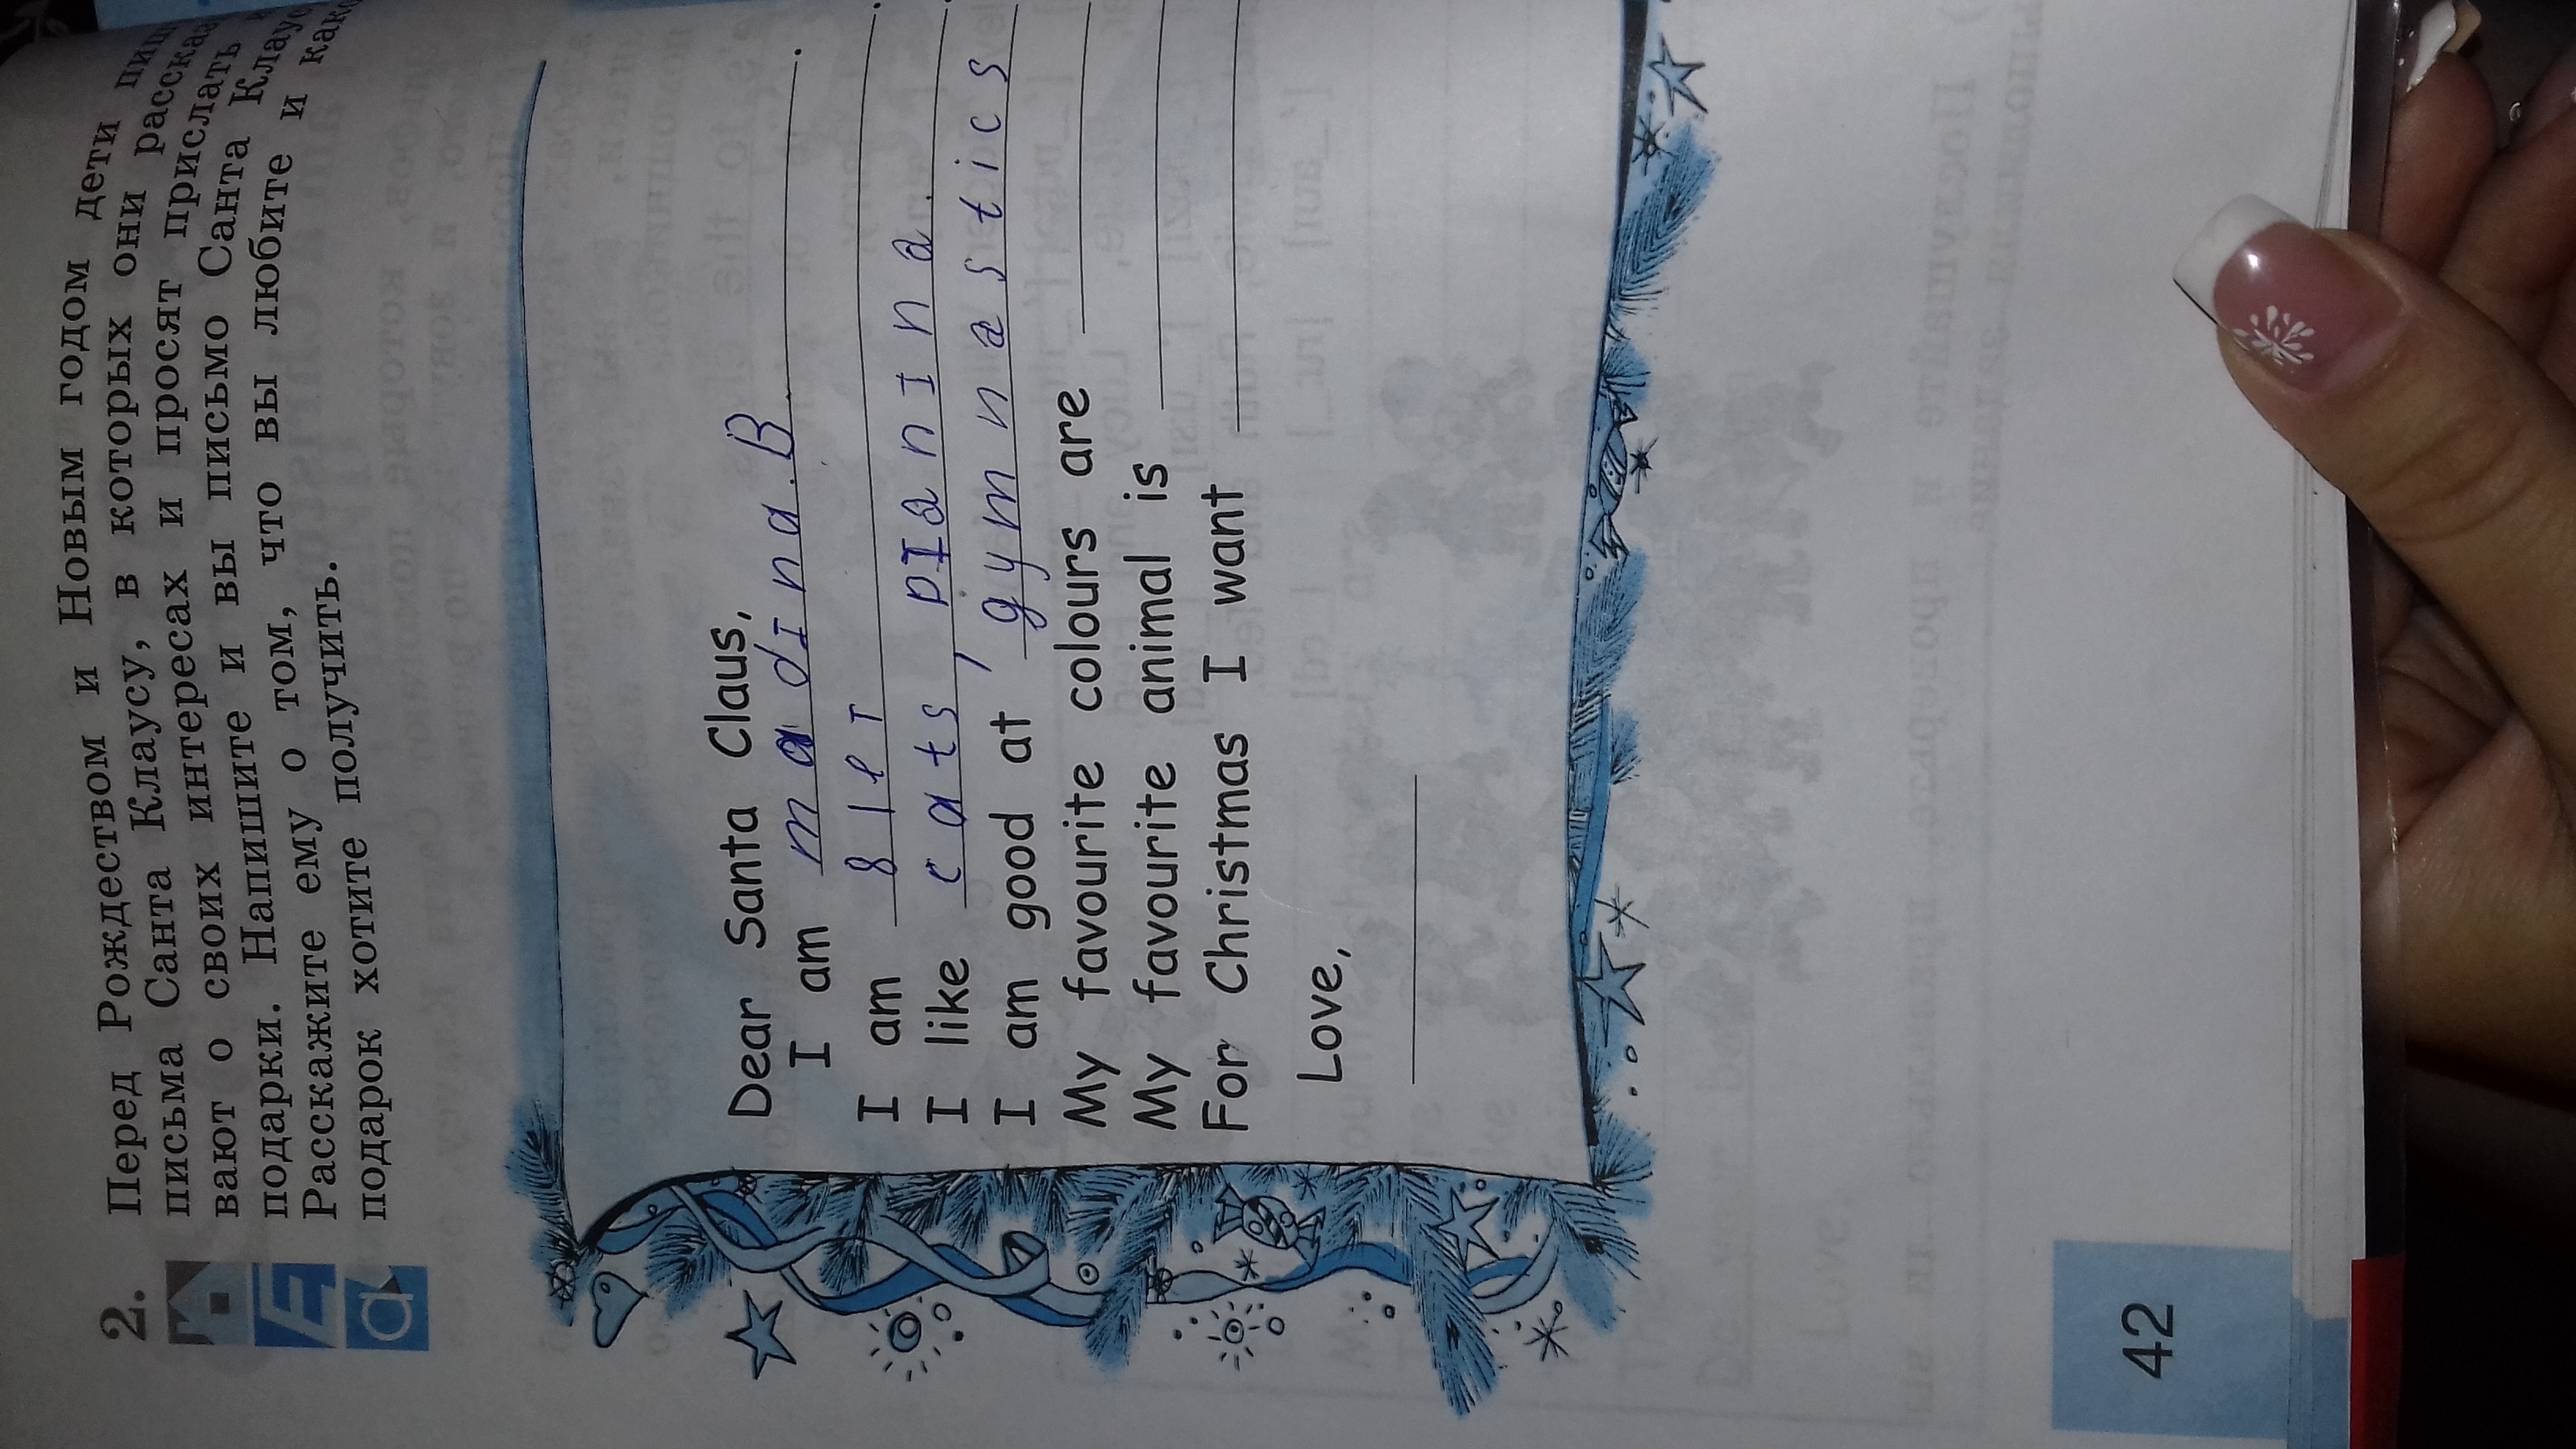 2. Перед Рождеством и Новым годом дети
письма Санта Клаусу, в которых они
вают о своих интересах и просят прислать
подарки. Напишите и вы письмо Санта
Расскажите ему о том, что вы любите и
подарок хотите получить.
Dear Santa Claus,
I am madIna.B.
I am 8 лет
I like cats, pIanIna.
I am good at gymnastics
My favourite colours are
My favourite animal is
For Christmas I want
Love,
42